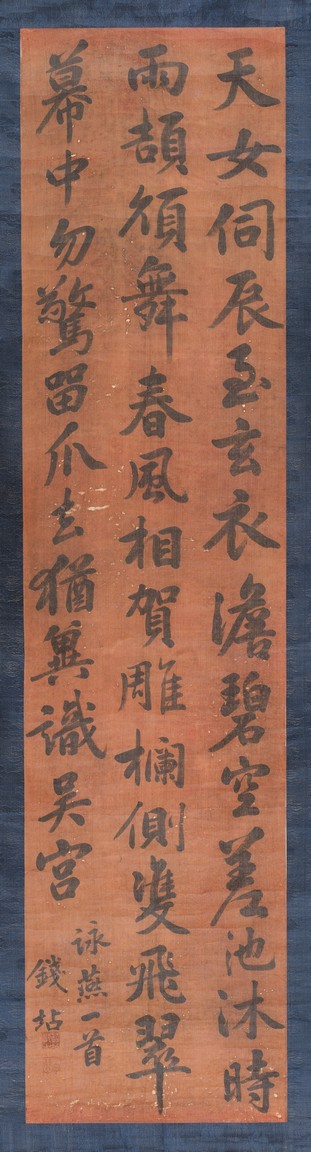 天女伺辰至玄衣澹碧空差池沐時
雨頡頏舞春風相賀雕欄側雙飛翠
幕中勿驚留爪去猶冀識吳宮
詠燕一首
錢坫